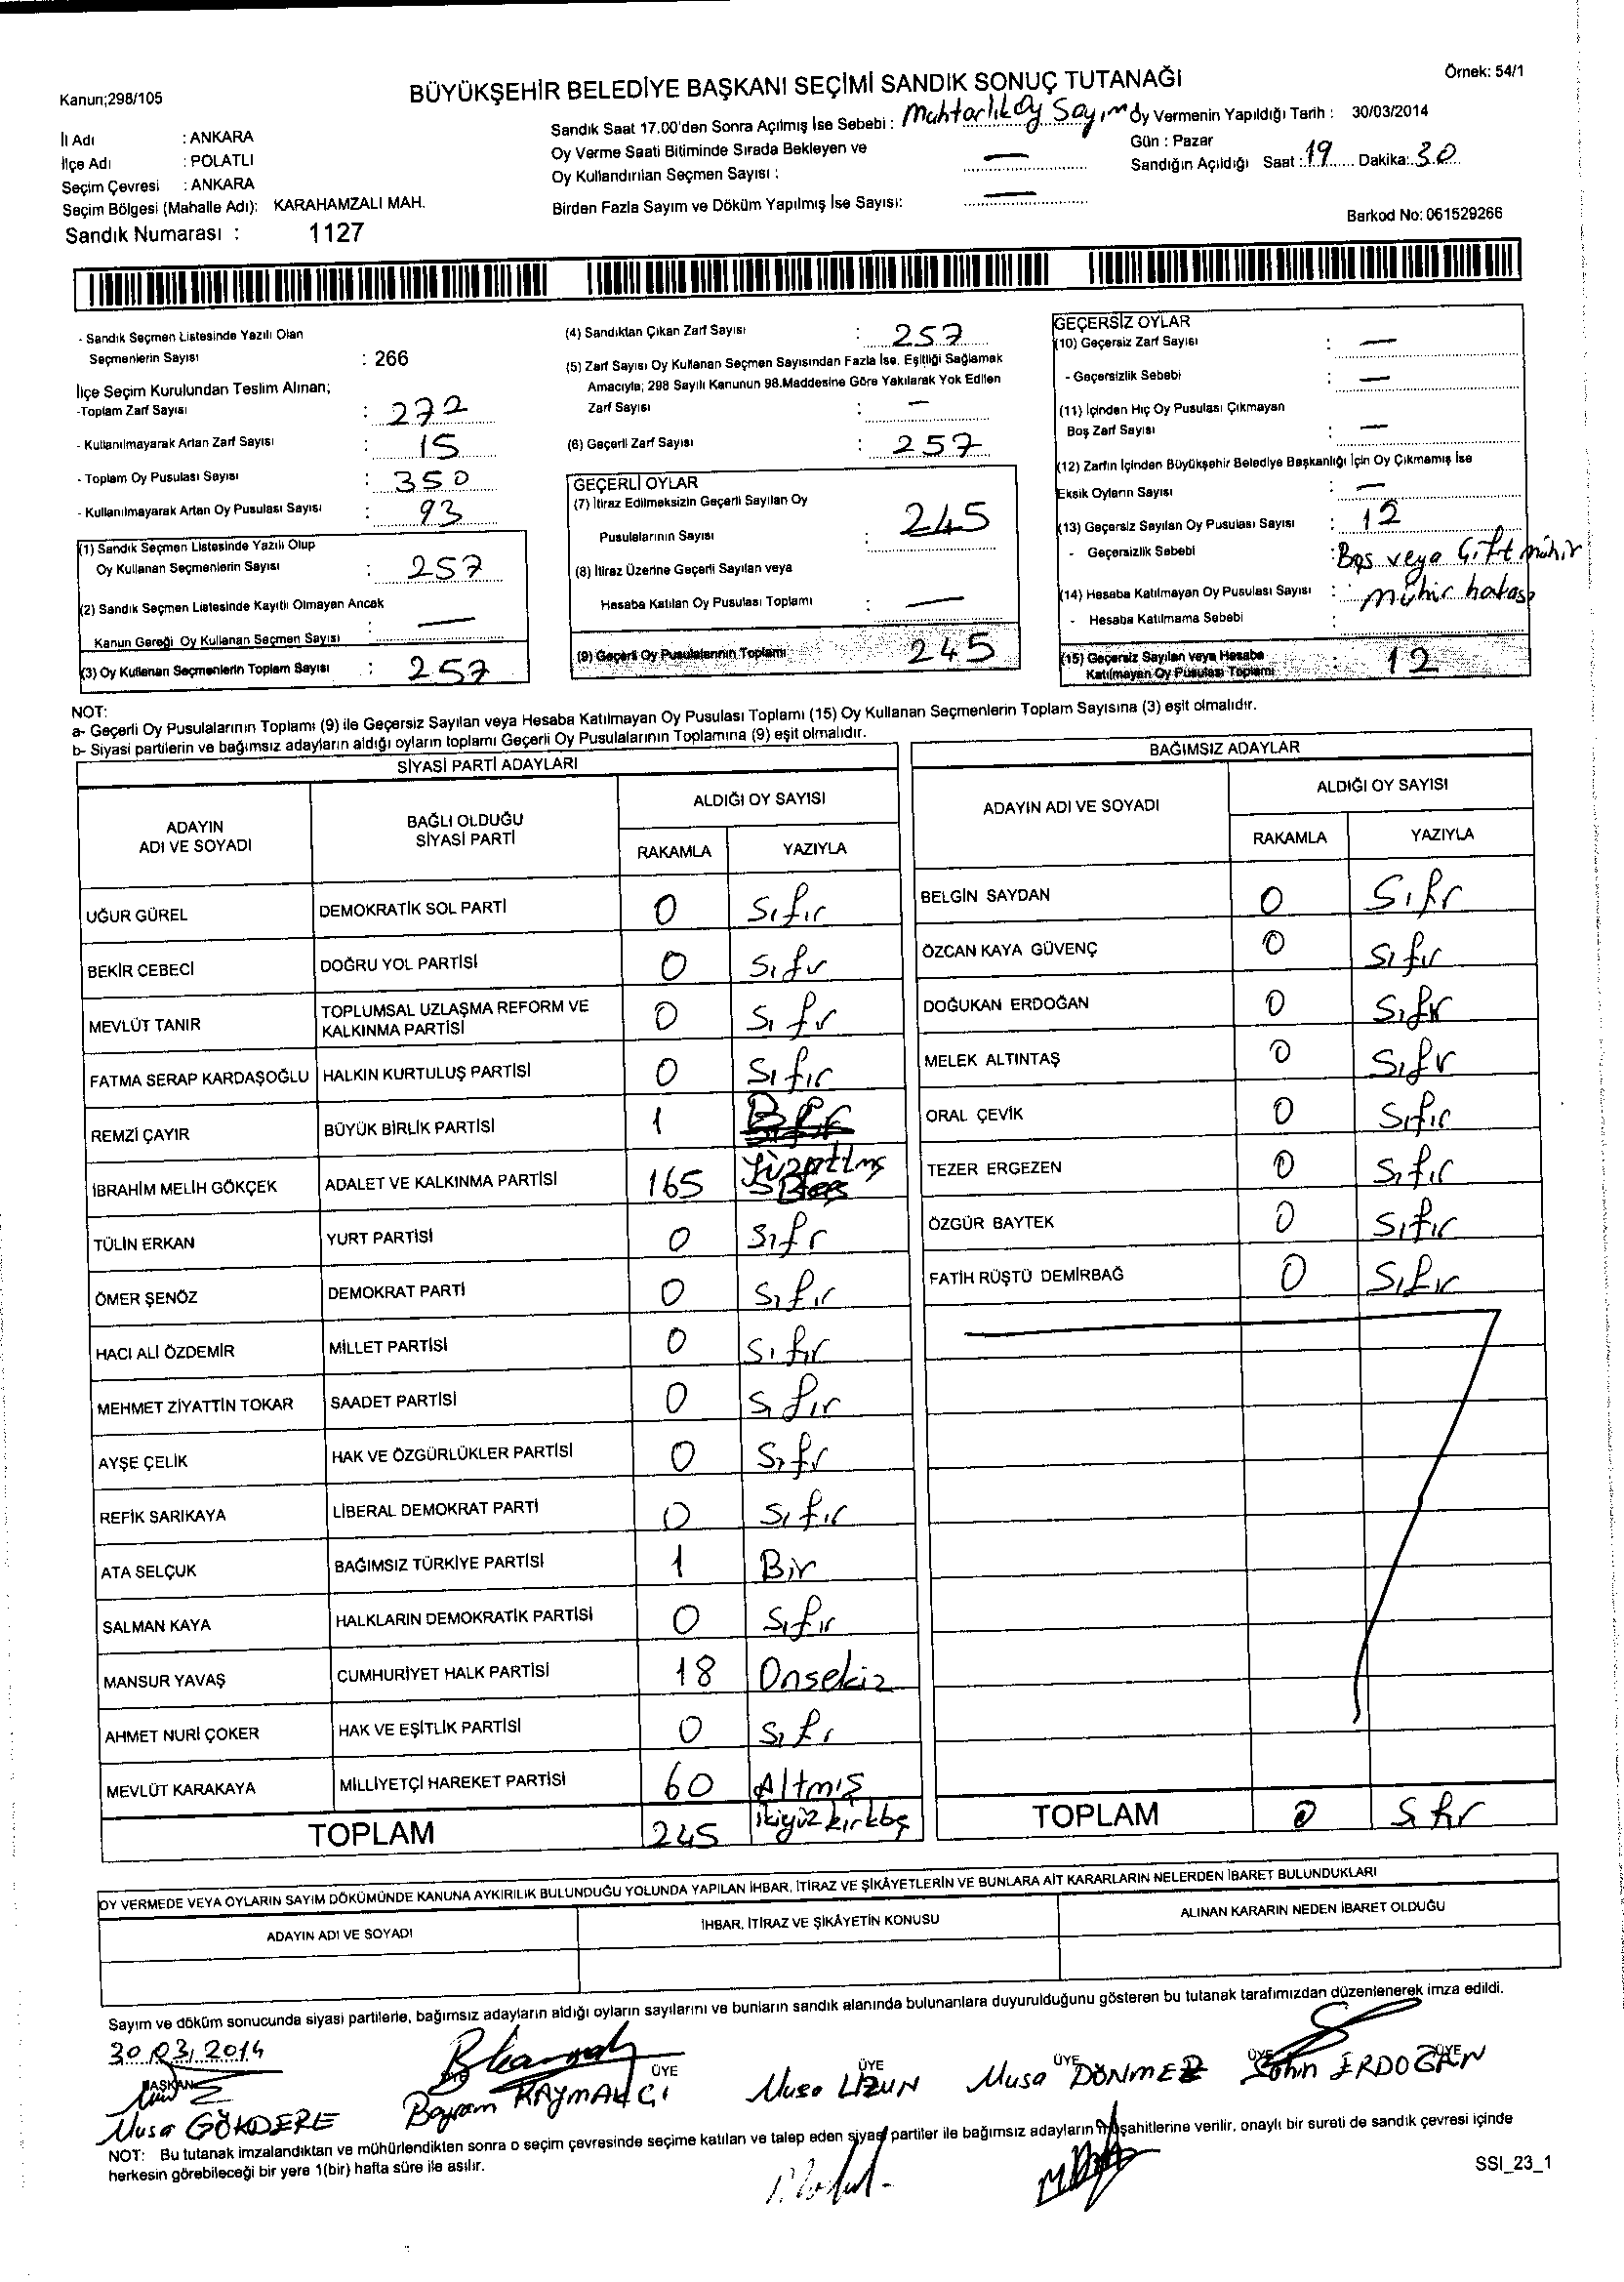 Kanun;298/105
BÜYÜKŞEHİR BELEDİYE BAŞKANI SEÇİMİ SANDIK SONUÇ TUTANAĞI
Örnek: 54/1
İl Adı : ANKARA
İlçe Adı : POLATLI
Seçim Çevresi : ANKARA
Seçim Bölgesi (Mahalle Adı): KARAHAMZALI MAH.
Sandık Numarası : 1127
Sandık Saat 17.00'den Sonra Açılmış İse Sebebi : Muhtarlık Oy Sayım
Oy Verme Saati Bitiminde Sırada Bekleyen ve
Oy Kullandırılan Seçmen Sayısı : —
Birden Fazla Sayım ve Döküm Yapılmış İse Sayısı: —
Oy Vermenin Yapıldığı Tarih : 30/03/2014
Gün : Pazar
Sandığın Açıldığı Saat : 19 Dakika: 30
Barkod No: 061529266
- Sandık Seçmen Listesinde Yazılı Olan
Seçmenlerin Sayısı : 266
İlçe Seçim Kurulundan Teslim Alınan;
-Toplam Zarf Sayısı : 272
- Kullanılmayarak Artan Zarf Sayısı : 15
- Toplam Oy Pusulası Sayısı : 350
- Kullanılmayarak Artan Oy Pusulası Sayısı : 93
(1) Sandık Seçmen Listesinde Yazılı Olup
Oy Kullanan Seçmenlerin Sayısı : 257
(2) Sandık Seçmen Listesinde Kayıtlı Olmayan Ancak
Kanun Gereği Oy Kullanan Seçmen Sayısı : —
(3) Oy Kullanan Seçmenlerin Toplam Sayısı : 257
(4) Sandıktan Çıkan Zarf Sayısı : 257
(5) Zarf Sayısı Oy Kullanan Seçmen Sayısından Fazla İse, Eşitliği Sağlamak
Amacıyla; 298 Sayılı Kanunun 98.Maddesine Göre Yakılarak Yok Edilen
Zarf Sayısı : —
(6) Geçerli Zarf Sayısı : 257
GEÇERLİ OYLAR
(7) İtiraz Edilmeksizin Geçerli Sayılan Oy
Pusulalarının Sayısı : 245
(8) İtiraz Üzerine Geçerli Sayılan veya
Hesaba Katılan Oy Pusulası Toplamı : —
(9) Geçerli Oy Pusulalarının Toplamı : 245
GEÇERSİZ OYLAR
(10) Geçersiz Zarf Sayısı : —
- Geçersizlik Sebebi : —
(11) İçinden Hiç Oy Pusulası Çıkmayan
Boş Zarf Sayısı : —
(12) Zarfın İçinden Büyükşehir Belediye Başkanlığı İçin Oy Çıkmamış İse
Eksik Oyların Sayısı : —
(13) Geçersiz Sayılan Oy Pusulası Sayısı : 12
- Geçersizlik Sebebi : Boş veya Çift mühür
(14) Hesaba Katılmayan Oy Pusulası Sayısı : mühür hatası
- Hesaba Katılmama Sebebi :
(15) Geçersiz Sayılan veya Hesaba
Katılmayan Oy Pusulası Toplamı : 12
NOT:
a- Geçerli Oy Pusulalarının Toplamı (9) ile Geçersiz Sayılan veya Hesaba Katılmayan Oy Pusulası Toplamı (15) Oy Kullanan Seçmenlerin Toplam Sayısına (3) eşit olmalıdır.
b- Siyasi partilerin ve bağımsız adayların aldığı oyların toplamı Geçerli Oy Pusulalarının Toplamına (9) eşit olmalıdır.
SİYASİ PARTİ ADAYLARI
ADAYIN ADI VE SOYADI
BAĞLI OLDUĞU SİYASİ PARTİ
ALDIĞI OY SAYISI
RAKAMLA YAZIYLA
UĞUR GÜREL DEMOKRATİK SOL PARTİ 0 Sıfır
BEKİR CEBECİ DOĞRU YOL PARTİSİ 0 Sıfır
MEVLÜT TANIR TOPLUMSAL UZLAŞMA REFORM VE KALKINMA PARTİSİ 0 Sıfır
FATMA SERAP KARDAŞOĞLU HALKIN KURTULUŞ PARTİSİ 0 Sıfır
REMZİ ÇAYIR BÜYÜK BİRLİK PARTİSİ 1 Bir
İBRAHİM MELİH GÖKÇEK ADALET VE KALKINMA PARTİSİ 165 Yüzatmış Beş
TÜLİN ERKAN YURT PARTİSİ 0 Sıfır
ÖMER ŞENÖZ DEMOKRAT PARTİ 0 Sıfır
HACI ALİ ÖZDEMİR MİLLET PARTİSİ 0 Sıfır
MEHMET ZİYATTİN TOKAR SAADET PARTİSİ 0 Sıfır
AYŞE ÇELİK HAK VE ÖZGÜRLÜKLER PARTİSİ 0 Sıfır
REFİK SARIKAYA LİBERAL DEMOKRAT PARTİ 0 Sıfır
ATA SELÇUK BAĞIMSIZ TÜRKİYE PARTİSİ 1 Bir
SALMAN KAYA HALKLARIN DEMOKRATİK PARTİSİ 0 Sıfır
MANSUR YAVAŞ CUMHURİYET HALK PARTİSİ 18 Onsekiz
AHMET NURİ ÇOKER HAK VE EŞİTLİK PARTİSİ 0 Sıfır
MEVLÜT KARAKAYA MİLLİYETÇİ HAREKET PARTİSİ 60 Altmış
TOPLAM 245 ikiyüz kırkbeş
BAĞIMSIZ ADAYLAR
ADAYIN ADI VE SOYADI
ALDIĞI OY SAYISI
RAKAMLA YAZIYLA
BELGİN SAYDAN 0 Sıfır
ÖZCAN KAYA GÜVENÇ 0 Sıfır
DOĞUKAN ERDOĞAN 0 Sıfır
MELEK ALTINTAŞ 0 Sıfır
ORAL ÇEVİK 0 Sıfır
TEZER ERGEZEN 0 Sıfır
ÖZGÜR BAYTEK 0 Sıfır
FATİH RÜŞTÜ DEMİRBAĞ 0 Sıfır
TOPLAM 0 Sıfır
OY VERMEDE VEYA OYLARIN SAYIM DÖKÜMÜNDE KANUNA AYKIRILIK BULUNDUĞU YOLUNDA YAPILAN İHBAR, İTİRAZ VE ŞİKÂYETLERİN VE BUNLARA AİT KARARLARIN NELERDEN İBARET BULUNDUKLARI
ADAYIN ADI VE SOYADI
İHBAR, İTİRAZ VE ŞİKÂYETİN KONUSU
ALINAN KARARIN NEDEN İBARET OLDUĞU
Sayım ve döküm sonucunda siyasi partilerle, bağımsız adayların aldığı oyların sayılarını ve bunların sandık alanında bulunanlara duyurulduğunu gösteren bu tutanak tarafımızdan düzenlenerek imza edildi.
30.03.2014
BAŞKAN ÜYE ÜYE ÜYE ÜYE
Musa GÖKDERE Bayram KAYMAKÇI Musa UZUN Musa DÖNMEZ Şahin ERDOĞAN
NOT: Bu tutanak imzalandıktan ve mühürlendikten sonra o seçim çevresinde seçime katılan ve talep eden siyasi partiler ile bağımsız adayların müşahitlerine verilir, onaylı bir sureti de sandık çevresi içinde
herkesin görebileceği bir yere 1(bir) hafta süre ile asılır.
SSI_23_1